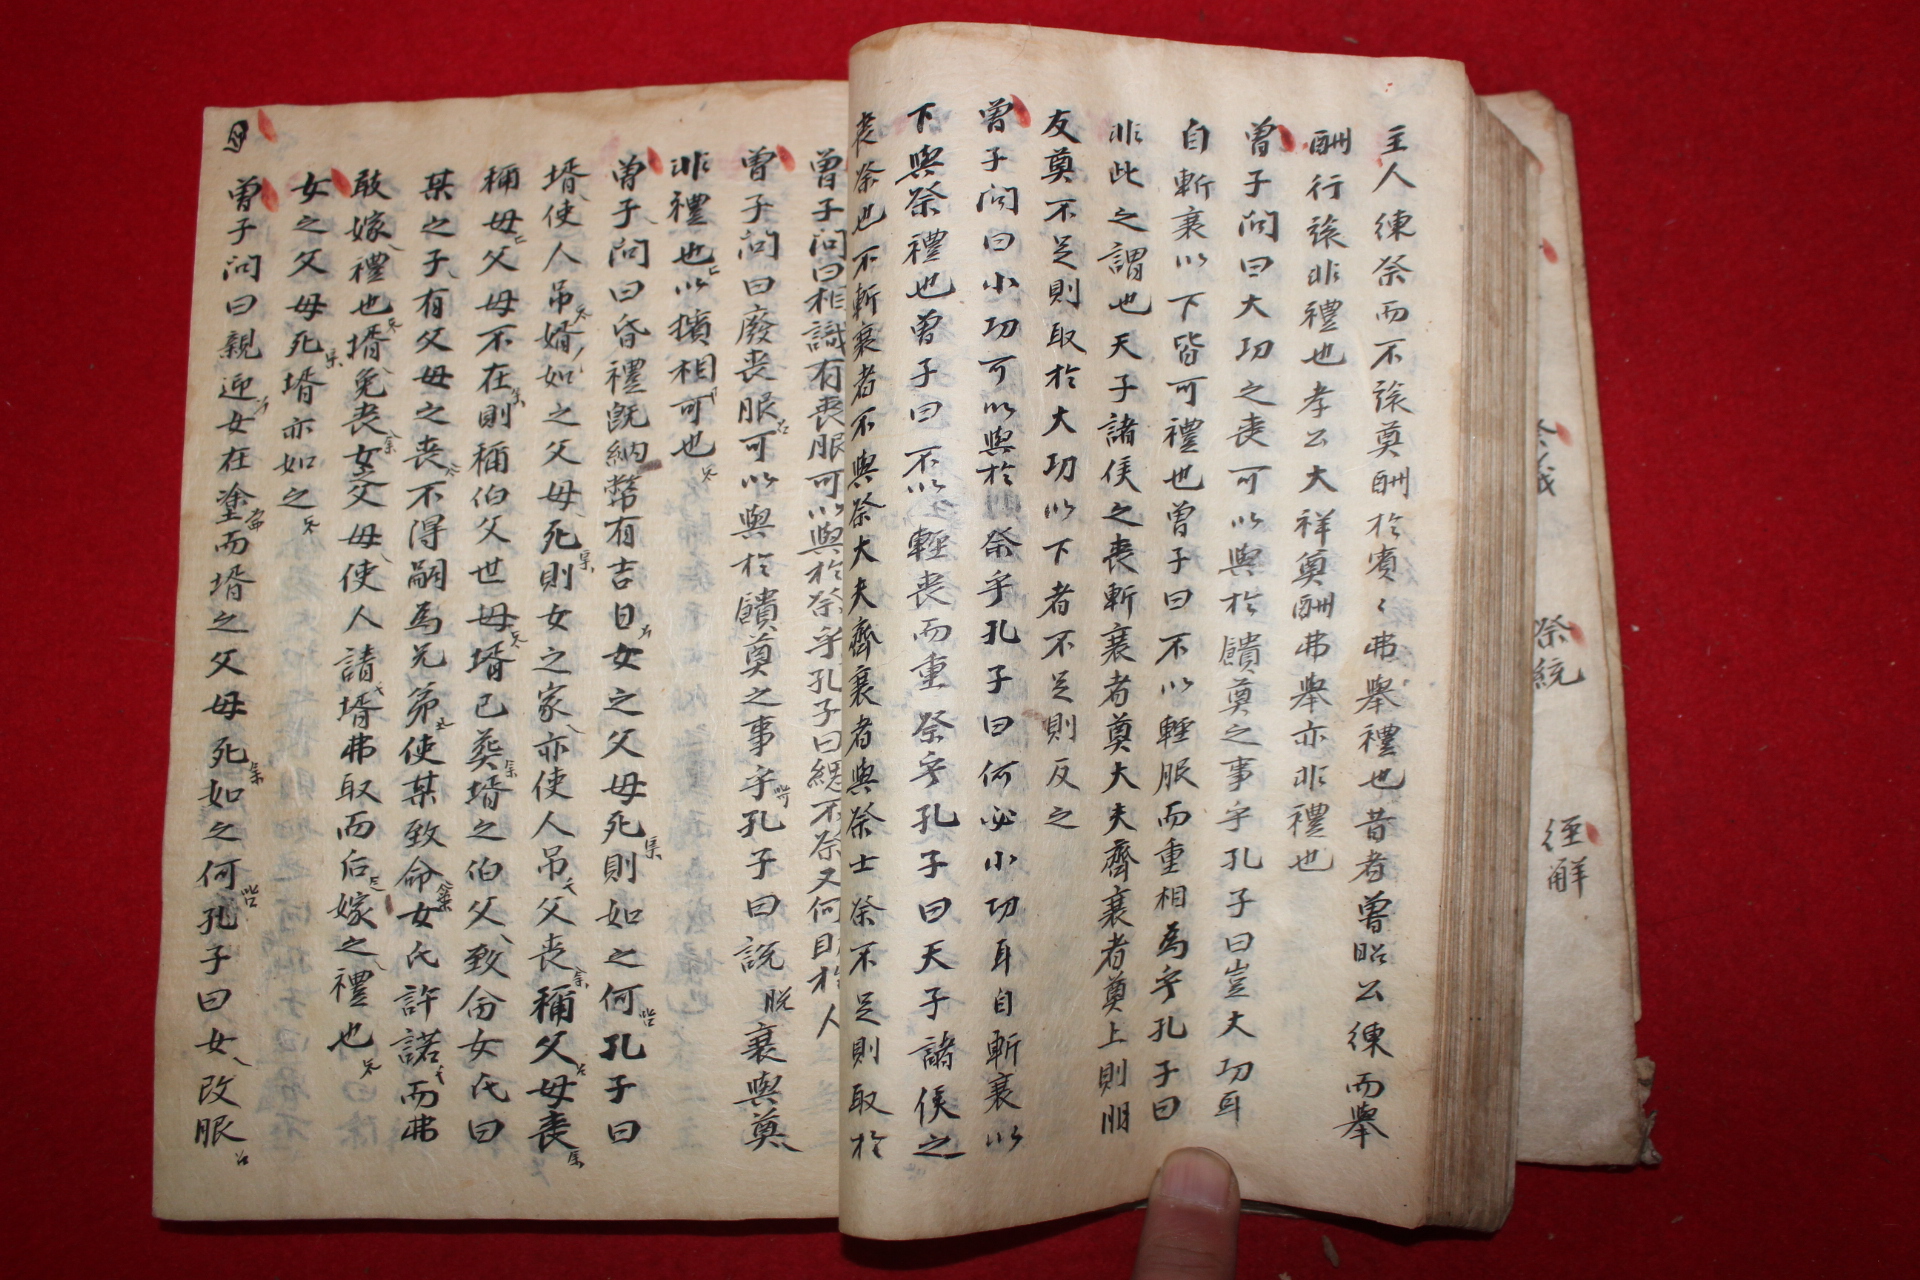 主人練祭而不旅奠酬於賓〻弗舉禮也昔者魯昭公練而舉
酬行旅非禮也孝公大祥奠酬弗舉亦非禮也
曾子問曰大功之喪可以與於饋奠之事乎孔子曰豈大功耳
自斬衰以下皆可禮也曾子曰不以輕服而重相為乎孔子曰
非此之謂也天子諸侯之喪斬衰者奠大夫齊衰者奠士則朋
友奠不足則取於大功以下者不足則反之
曾子問曰小功可以與於祭乎孔子曰何必小功耳自斬衰以
下與祭禮也曾子曰不以輕喪而重祭乎孔子曰天子諸侯之
喪祭也不斬衰者不與祭大夫齊衰者與祭士祭不足則取於
曾子問曰相識有喪服可以與於祭乎孔子曰緦不祭又何助於人
曾子問曰廢喪服可以與於饋奠之事乎孔子曰說脫衰與奠
非禮也以擯相可也
曾子問曰昏禮既納幣有吉日女之父母死則如之何孔子曰
壻使人吊婿如之父母死則女之家亦使人吊父喪稱父母喪
稱母父母不在則稱伯父世母壻已葬壻之伯父致命女氏曰
某之子有父母之喪不得嗣為兄弟使某致命女氏許諾而弗
敢嫁禮也壻免喪女之父母使人請壻弗取而后嫁之禮也
女之父母死壻亦如之
曾子問曰親迎女在塗而壻之父母死如之何孔子曰女改服
母
祭統
經解